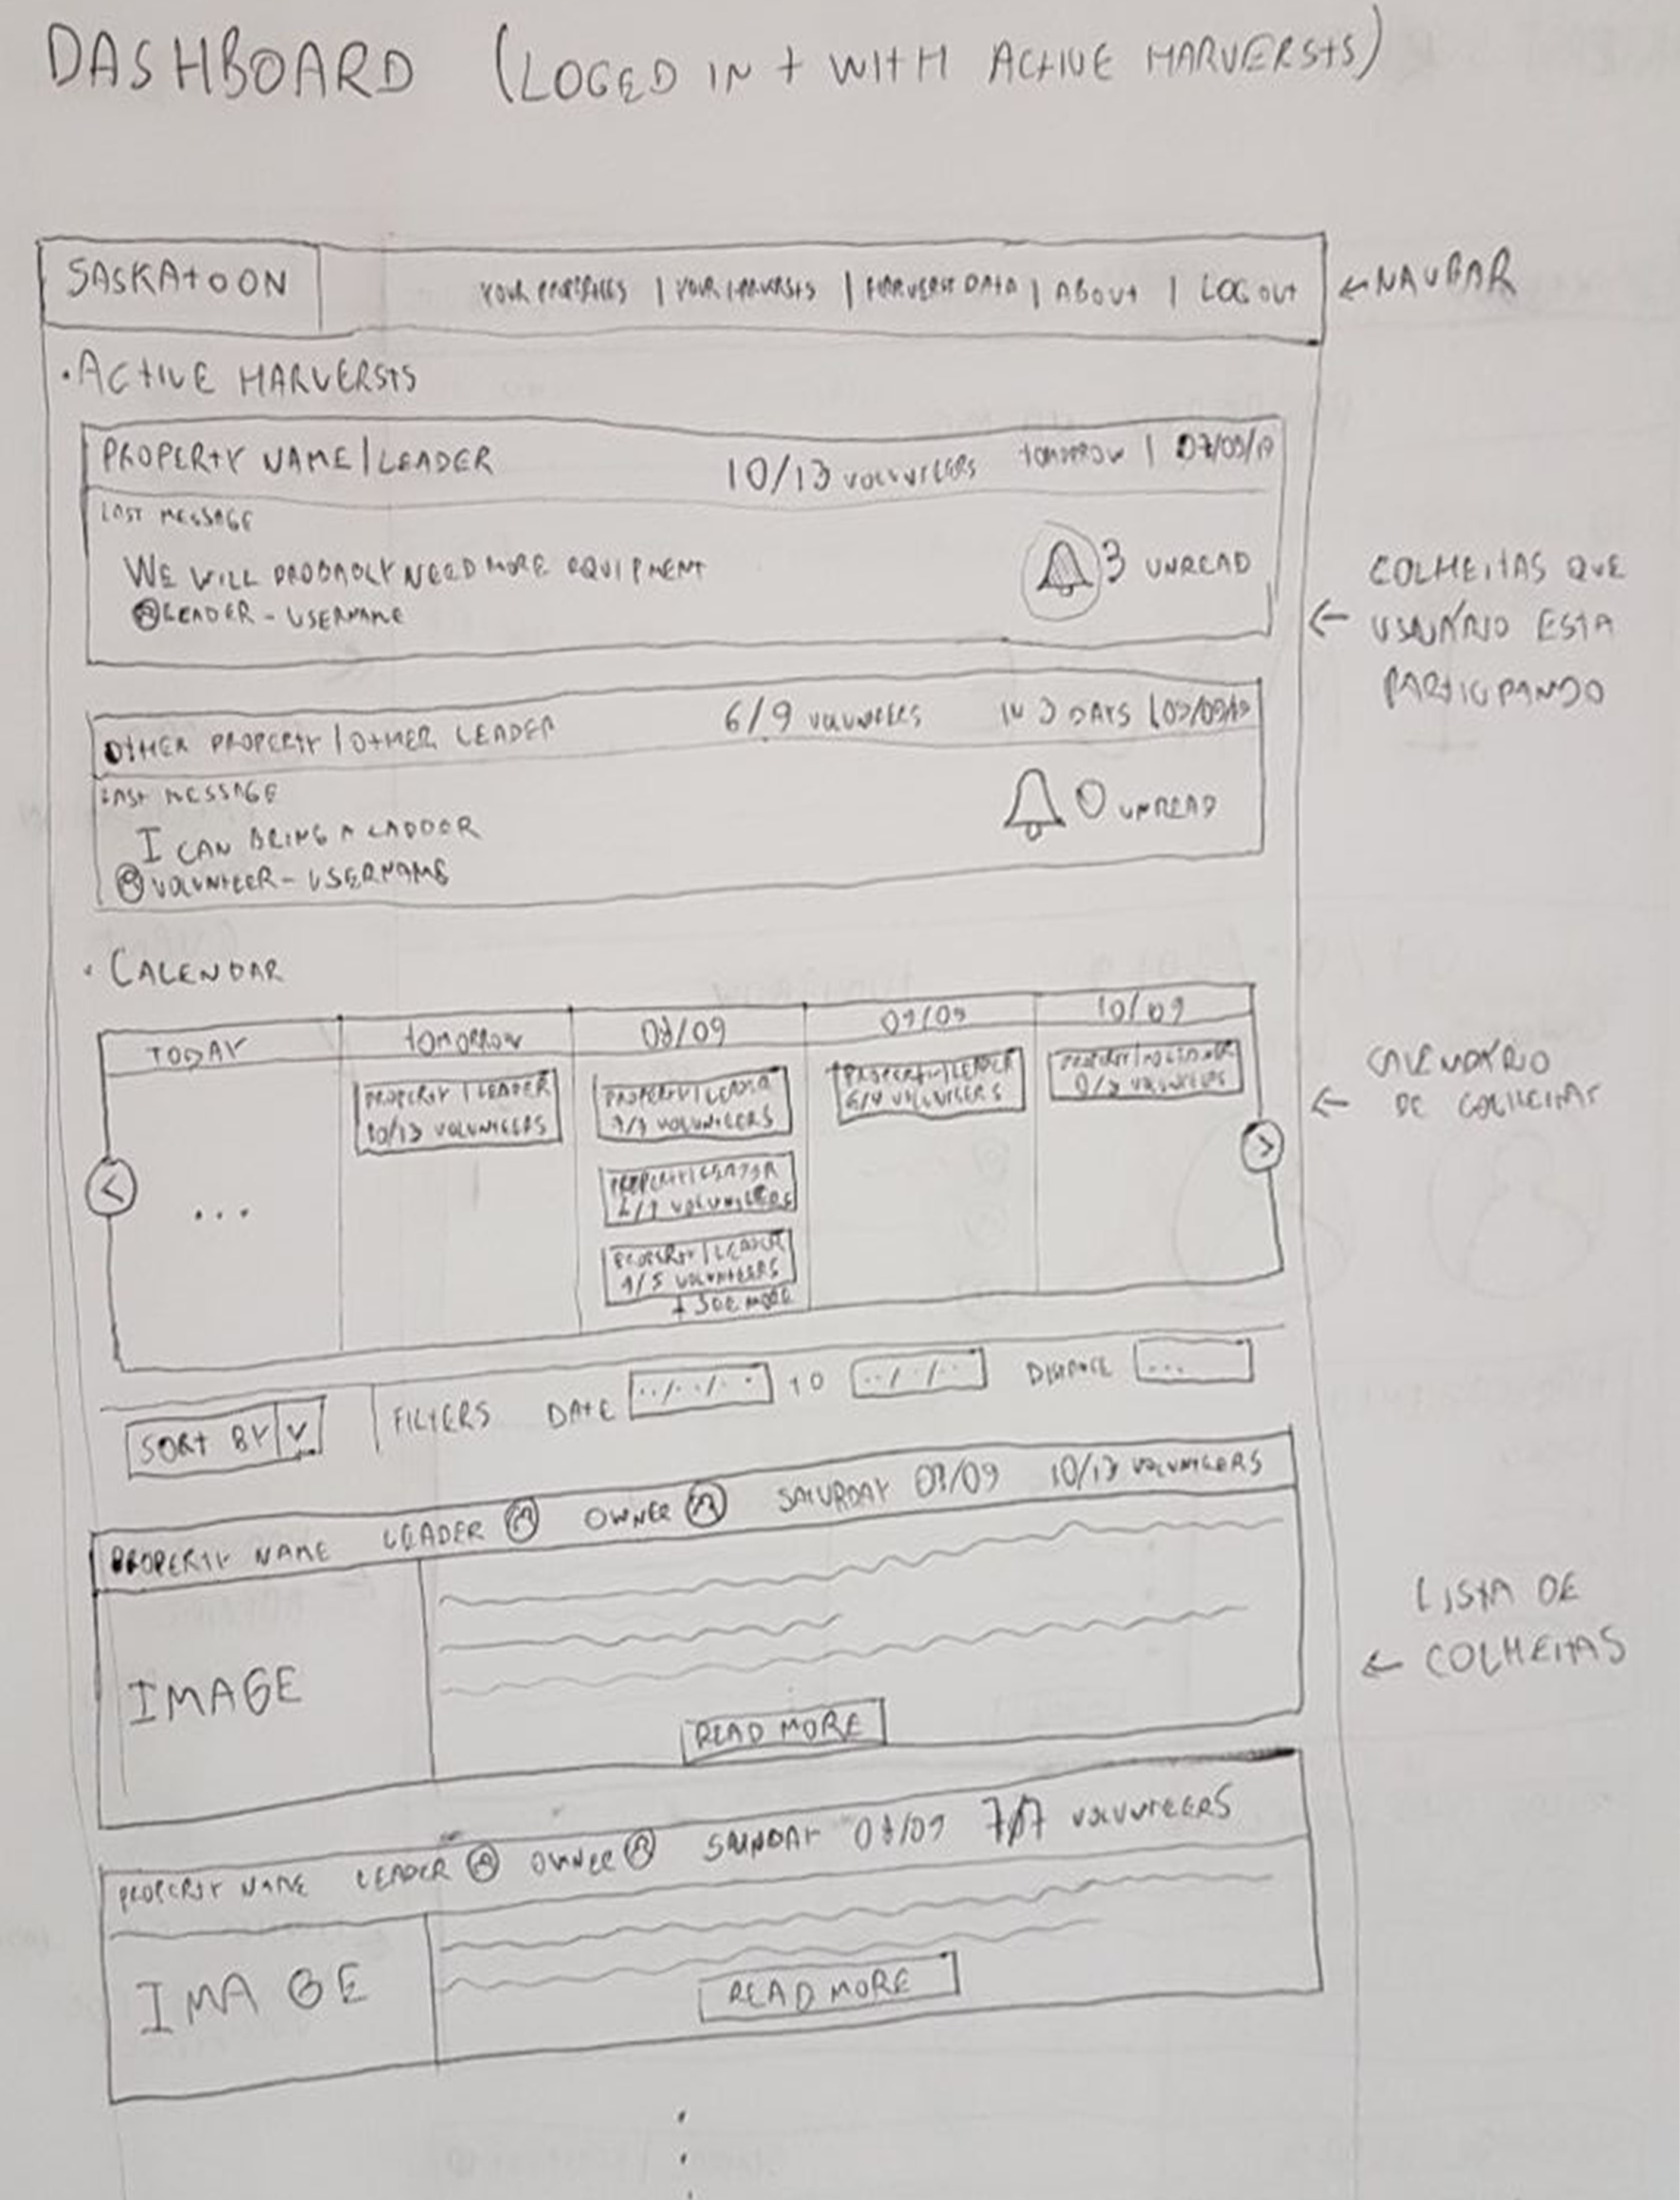 DASHBOARD (LOGED IN + WITH ACTIVE HARVERSTS)
SASKATOON
YOUR PROPERTIES | YOUR HARVERSTS | HARVERST DATA | ABOUT | LOG OUT
← NAVBAR
• ACTIVE HARVERSTS
PROPERTY NAME | LEADER
10/13 VOLUNTEERS
TOMORROW | 07/09/19
LAST MESSAGE
WE WILL PROBABLY NEED MORE EQUIPMENT
LEADER - USERNAME
3 UNREAD
COLHEITAS QUE
← USUÁRIO ESTA
PARTICIPANDO
OTHER PROPERTY | OTHER LEADER
6/9 VOLUNTEERS
IN 3 DAYS | 09/09/19
LAST MESSAGE
I CAN BRING A LADDER
VOLUNTEER - USERNAME
0 UNREAD
• CALENDAR
TODAY
TOMORROW
08/09
09/09
10/09
...
PROPERTY | LEADER
10/13 VOLUNTEERS
PROPERTY | LEADER
VOLUNTEERS
PROPERTY | LEADER
VOLUNTEERS
PROPERTY | LEADER
4/5 VOLUNTEERS
+ SEE MORE
PROPERTY | LEADER
6/9 VOLUNTEERS
PROPERTY | NO LEADER
VOLUNTEERS
<
>
CALENDÁRIO
← DE COLHEITAS
SORT BY V
FILTERS DATE ../../.. TO ../../.. DISTANCE ...
PROPERTY NAME LEADER OWNER SATURDAY 07/09 10/13 VOLUNTEERS
IMAGE
READ MORE
LISTA DE
← COLHEITAS
PROPERTY NAME LEADER OWNER SUNDAY 08/09 7/7 VOLUNTEERS
IMAGE
READ MORE